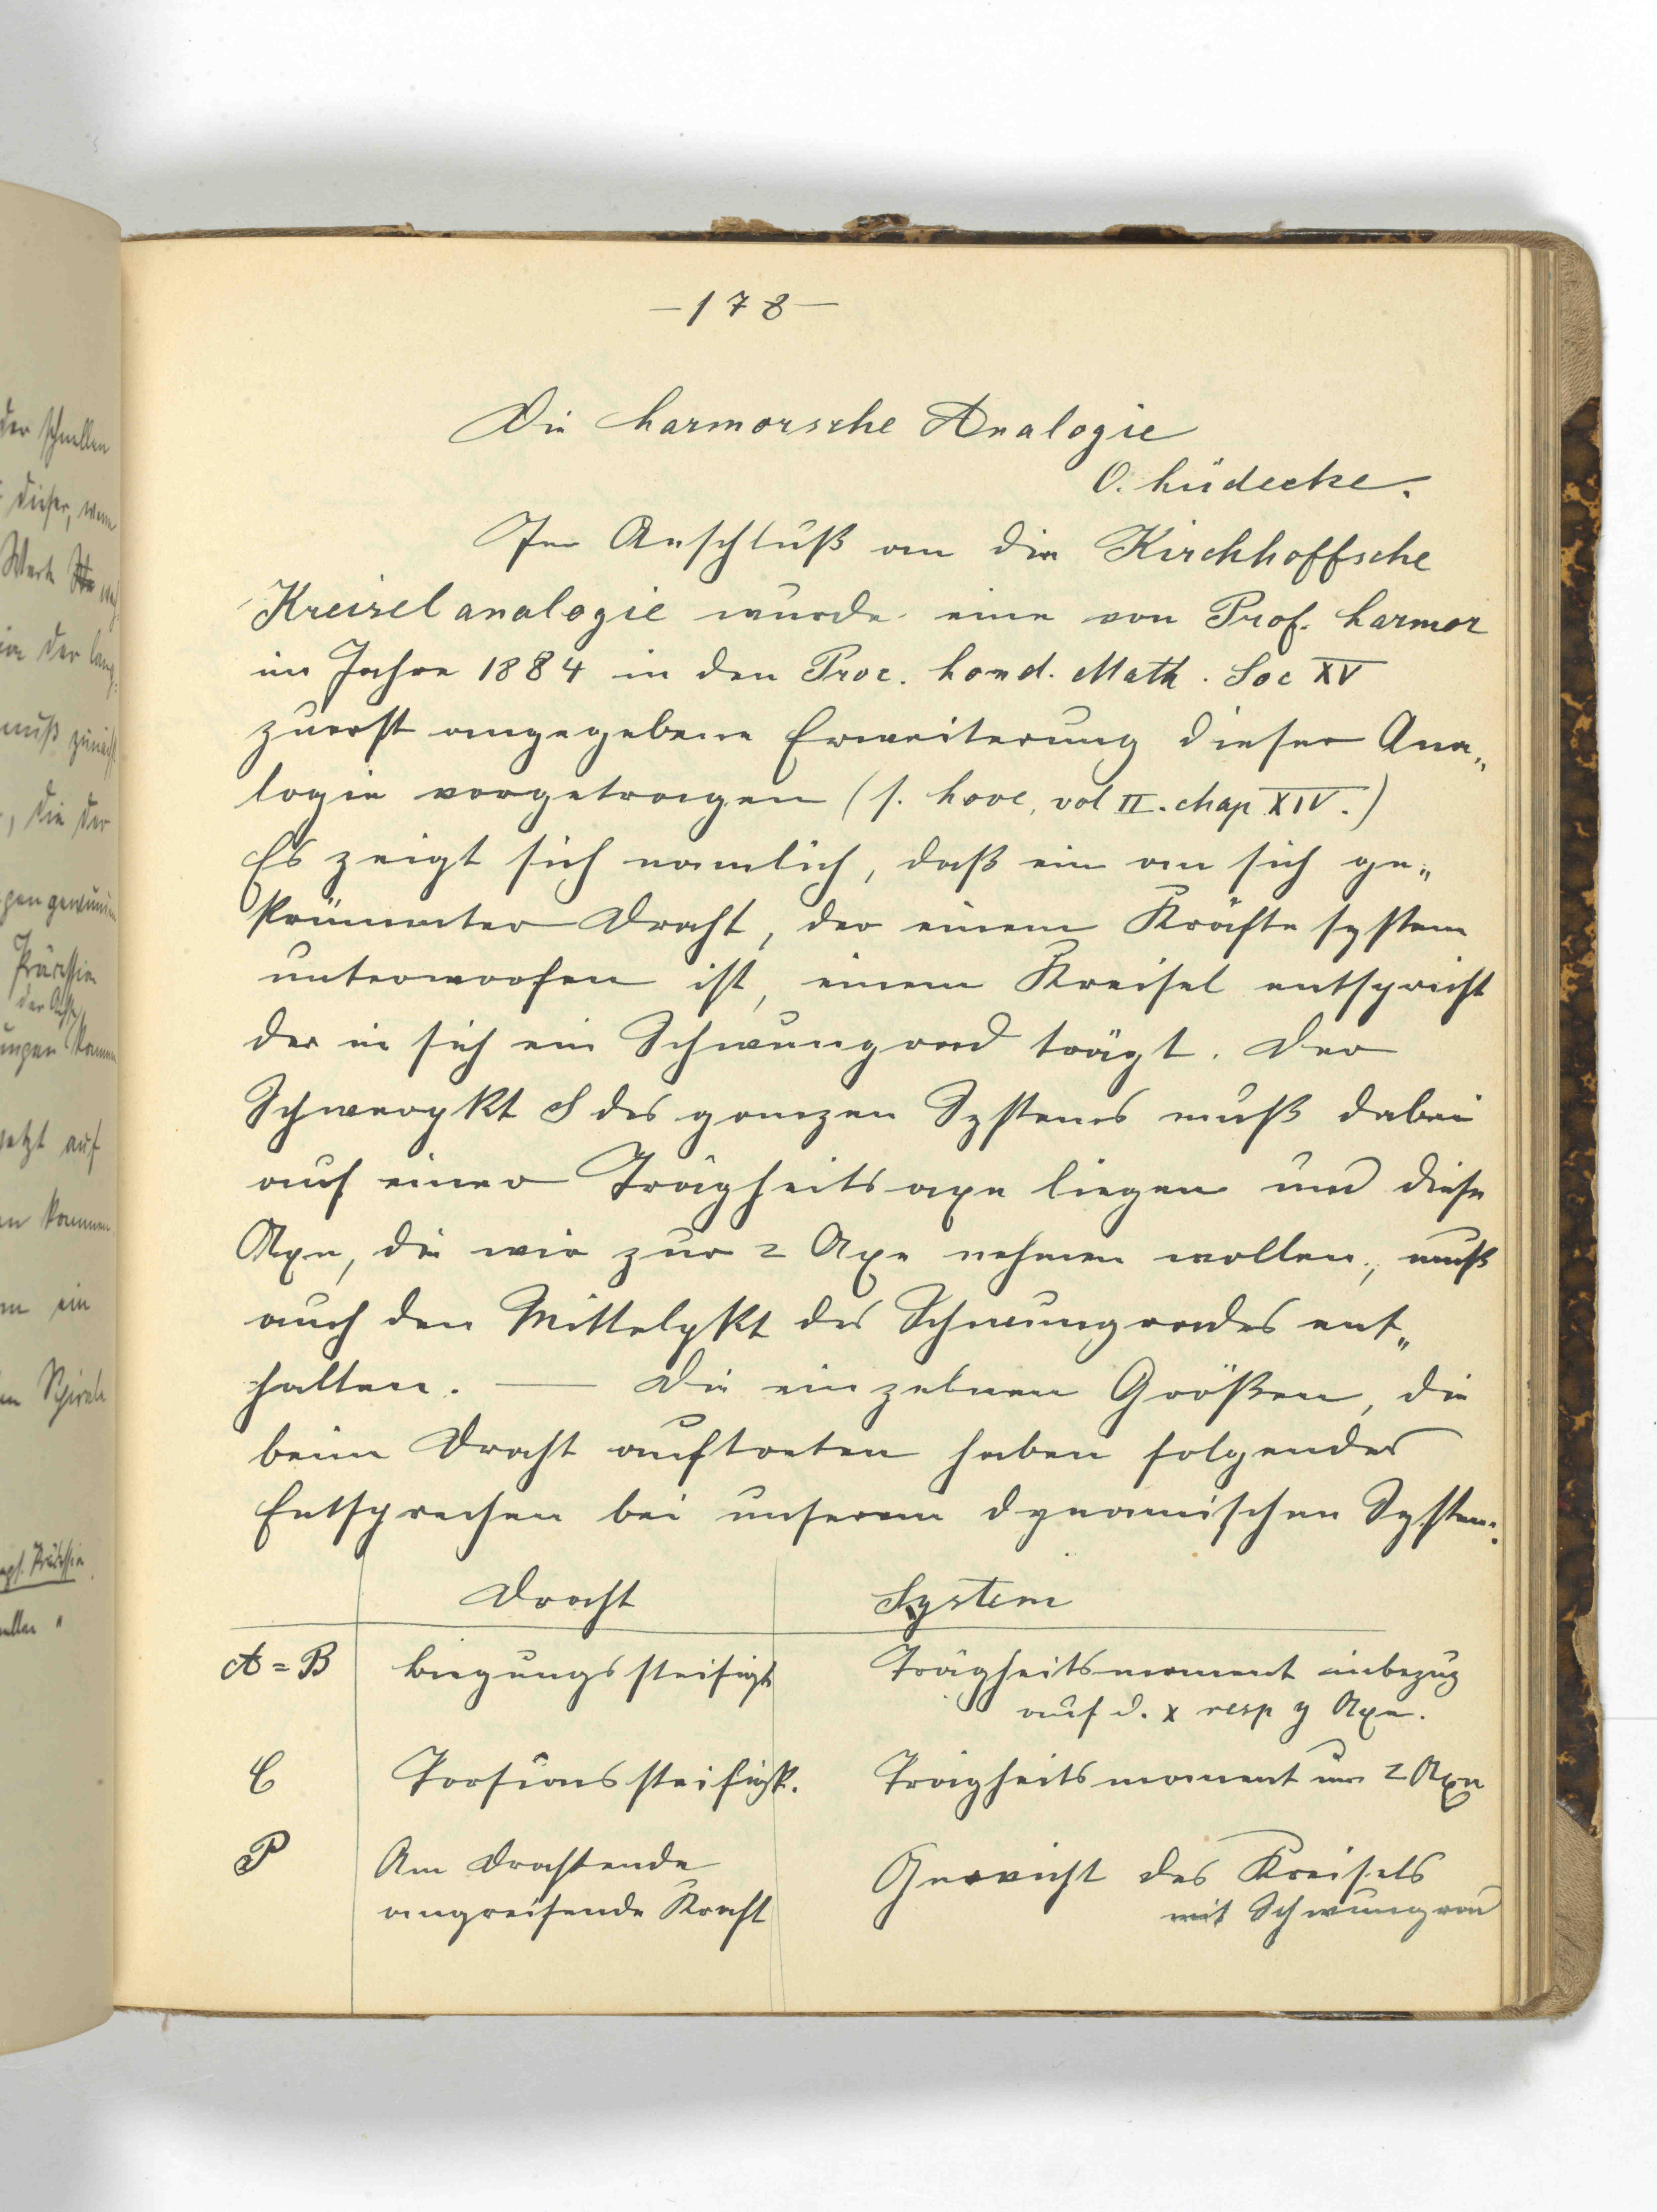 —178—
Die Larmorsche Analogie
O. Lüdecke.
Im Anschluß an die Kirchhoffsche
Kreiselanalogie wurde eine von Prof. Larmor
im Jahre 1884 in den Proc. Lond. Math. Soc XV
zuerst angegebene Erweiterung dieser Ana„
logie vorgetragen (s. Love, vol II. chap XIV.)
Es zeigt sich namlich, daß ein an sich ge„
krümmter Draht, der einem Kräfte system
unterworfen ist, einem Kreisel entspricht
der in sich ein Schwungrad trägt. Der
Schwerpkt S des ganzen Systems muß dabei
auf einer Trägheitsaxe liegen und diese
Axe, die wir zur z Axe nehmen wollen, muß
auch den Mittelpkt des Schwungrades ent„
halten. — Die einzelnen Größen, die
beim Draht auftreten haben folgendes
Entsprechen bei unserem dynamischen System:
Draht System
A = B Biegungssteifigkt Trägheitsmoment inbezug
auf d. x resp y Axe.
C Torsionssteifigk. Trägheitsmoment um z Axe
P Am Drahtende Gewicht des Kreisels
angreifende Kraft mit Schwungrad
der schnellen
dieser, wenn
Wert
in der lang
muß zunächst
, die der
Präzession
der Achse
ungen kommen
jetzt auf
en kommen
ein
en Spirale